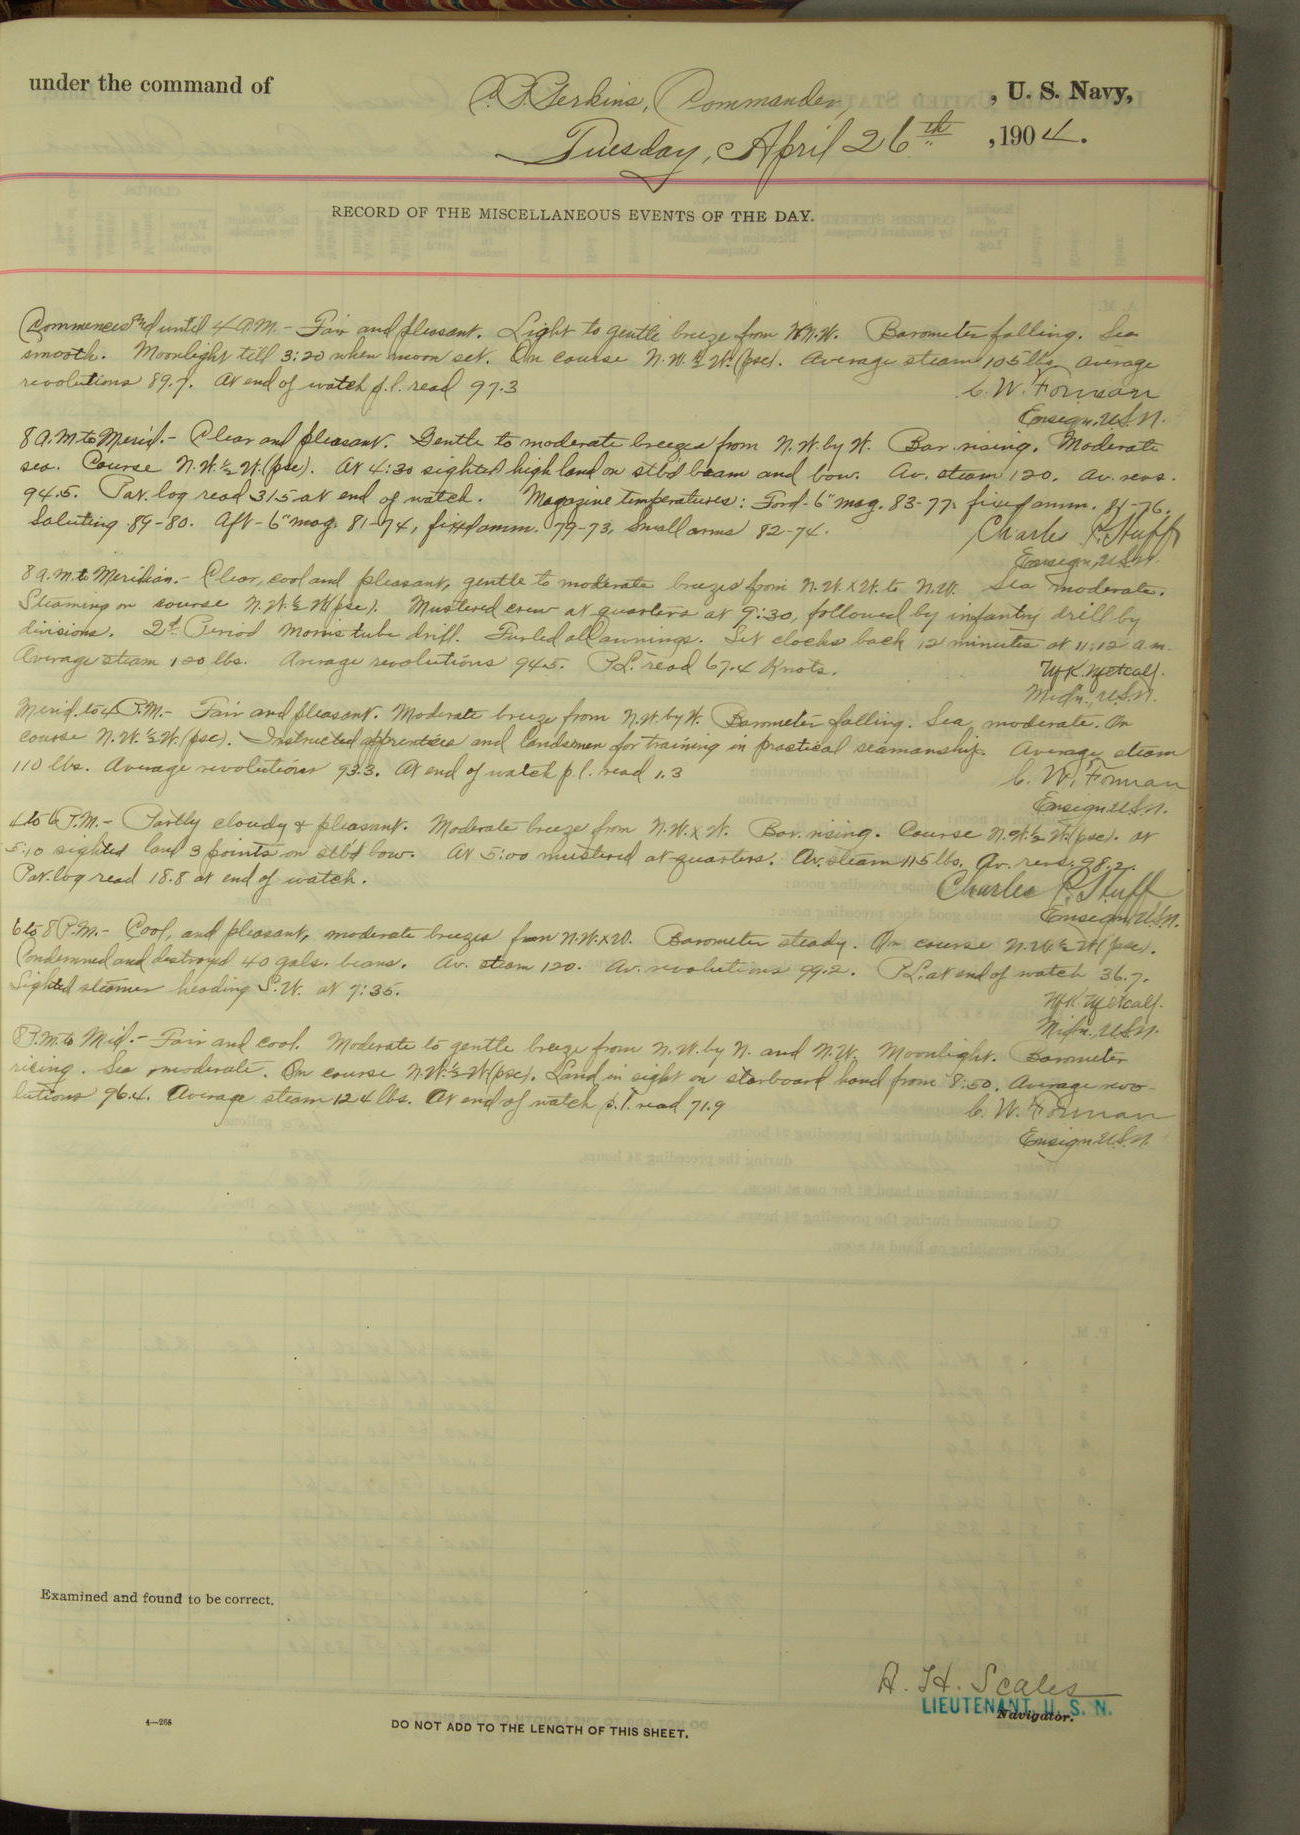 under the command of C. P. Perkins, Commander, U. S. Navy,
Tuesday, April 26th, 1904.
RECORD OF THE MISCELLANEOUS EVENTS OF THE DAY.
Commences and until 4 A.M. - Fair and pleasant. Light to gentle breeze from N.N.W. Barometer falling. Sea
smooth. Moonlight till 3:20 when moon set. On course N.W. ½ W. (psc). Average steam 105 lbs, average
revolutions 89.7. At end of watch p.l. read 97.3
C. W. Forman
Ensign, U.S.N.
8 A.M. to Merid. - Clear and pleasant. Gentle to moderate breezes from N.W. by W. Bar. rising. Moderate
sea. Course N.W. ½ W. (psc). At 4:30 sighted high land on stb'd beam and bow. Av. steam 120. Av. revs.
94.5. Pat. log read 31.5 at end of watch. Magazine temperatures: Ford - 6" mag. 83-77. fixed amm. 84-76.
Saluting 89-80. Aft - 6" mag. 81-74, fixed amm. 79-73, Small arms 82-74.
Charles P. Huff
Ensign, U.S.N.
8 a.m. to Meridian. - Clear, cool and pleasant, gentle to moderate breezes from N.W. x W. to N.W. Sea moderate.
Steaming on course N.W. ½ W. (psc). Mustered crew at quarters at 9:30, followed by infantry drill by
divisions. 2d. Period Morris tube drill. Furled all awnings. Set clocks back 12 minutes at 11:12 a.m.
Average steam 120 lbs. Average revolutions 94.5. P.L. read 67.4 Knots.
M.K. Metcalf.
Mid'n., U.S.N.
Merid. to 4 P.M. - Fair and pleasant. Moderate breeze from N.W. by W. Barometer falling. Sea moderate. On
course N.W. ½ W. (psc). Instructed apprentices and landsmen for training in practical seamanship. Average steam
110 lbs. Average revolutions 93.3. At end of watch p.l. read 1.3
C. W. Forman
Ensign U.S.N.
4 to 6 P.M. - Partly cloudy & pleasant. Moderate breeze from N.W. x W. Bar. rising. Course N.W. ½ W. (psc). At
5:10 sighted land 3 points on stb'd bow. At 5:00 mustered at quarters. Av. steam 115 lbs. Av. revs. 98.2.
Pat. log read 18.8 at end of watch.
Charles P. Huff
Ensign, U.S.N.
6 to 8 P.M. - Cool, and pleasant, moderate breezes from N.W. x W. Barometer steady. On course N.W. ½ W. (psc).
Condemned and destroyed 40 gals. beans. Av. steam 120. Av. revolutions 99.2. P.L. at end of watch 36.7.
Sighted steamer heading S.W. at 7:35.
M.K. Metcalf.
Mid'n., U.S.N.
8 P.M. to Mid. - Fair and cool. Moderate to gentle breeze from N.W. by N. and N.W. Moonlight. Barometer
rising. Sea moderate. On course N.W. ½ W. (psc). Land in sight on starboard hand from 8:50. Average revo-
lutions 96.4. Average steam 124 lbs. At end of watch p.l. read 71.9
C. W. Forman
Ensign U.S.N.
Examined and found to be correct.
A. H. Scales
LIEUTENANT, U. S. N.
Navigator.
4—268
DO NOT ADD TO THE LENGTH OF THIS SHEET.